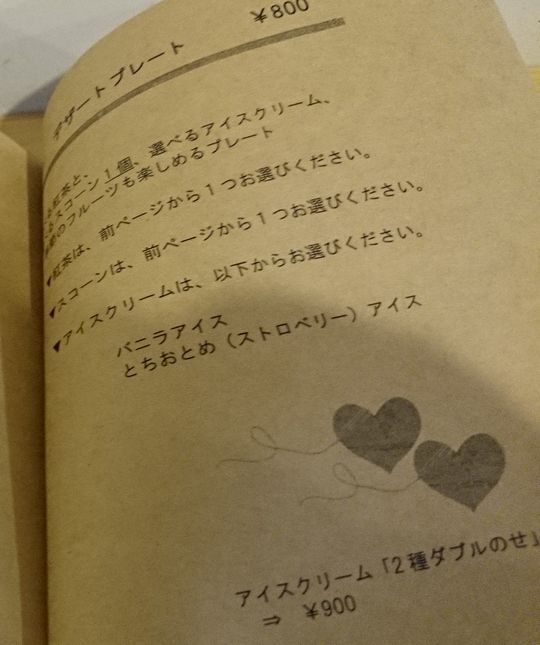 デザートプレート
¥800
紅茶と、
スコーン1個、選べるアイスクリーム、
のフルーツも楽しめるプレート
▼紅茶は、前ページから1つお選びください。
▼スコーンは、前ページから1つお選びください。
▼アイスクリームは、以下からお選びください。
バニラアイス
とちおとめ（ストロベリー）アイス
アイスクリーム「2種ダブルのせ」
⇒ ¥900